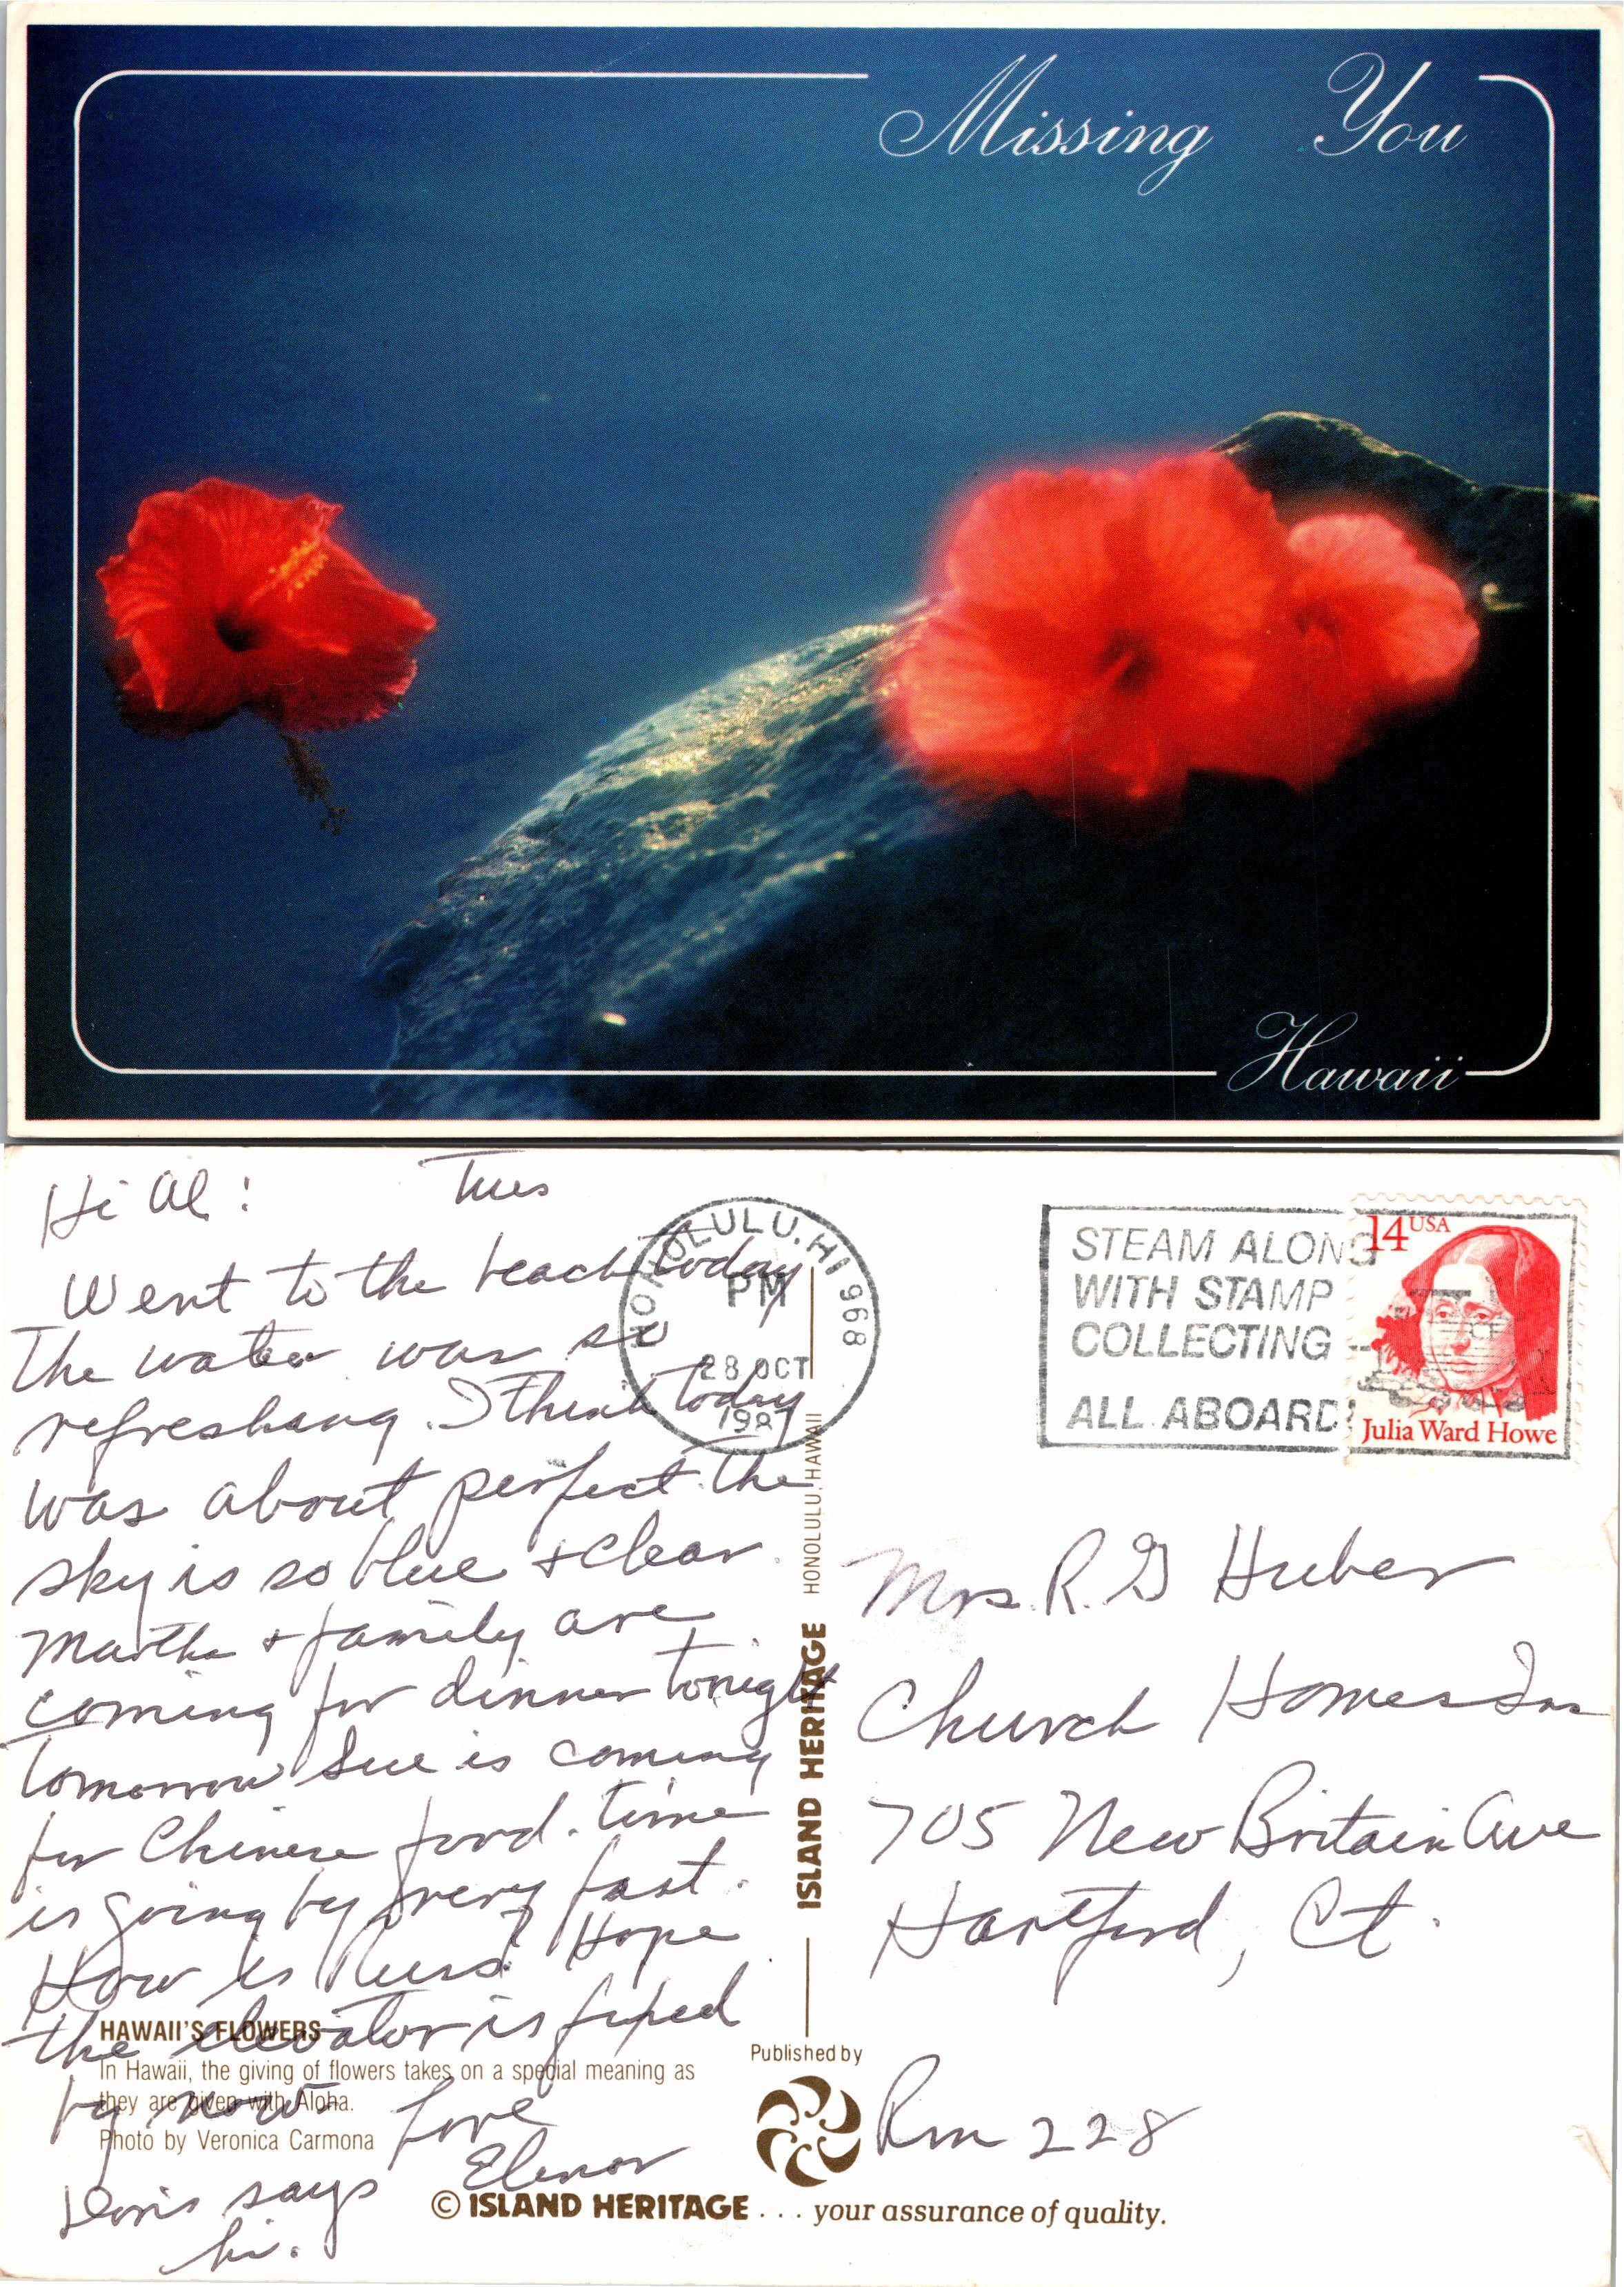 Missing You
Hawaii
Hi Al! Tues
Went to the beach today
The water was so
refreshang. I think today
was about perfect. the
sky is so blue & clear.
Martha & family are
coming for dinner tonight
Tomorrow Sue is coming
for Chinese food. time
is going by very fast.
How is ? Hope
the elevator is fixed
by now. Love
Elenor
Doris says
hi.
HAWAII'S FLOWERS
In Hawaii, the giving of flowers takes on a special meaning as
they are given with Aloha.
Photo by Veronica Carmona
HONOLULU, HI 968
PM
28 OCT
1987
STEAM ALONG
WITH STAMP
COLLECTING --
ALL ABOARD!
14 USA
Julia Ward Howe
ISLAND HERITAGE HONOLULU, HAWAII
Mrs. R. G Huber
Church Homes Inc
705 New Britain Ave
Hartford, Ct.
Rm 228
Published by
© ISLAND HERITAGE . . . your assurance of quality.